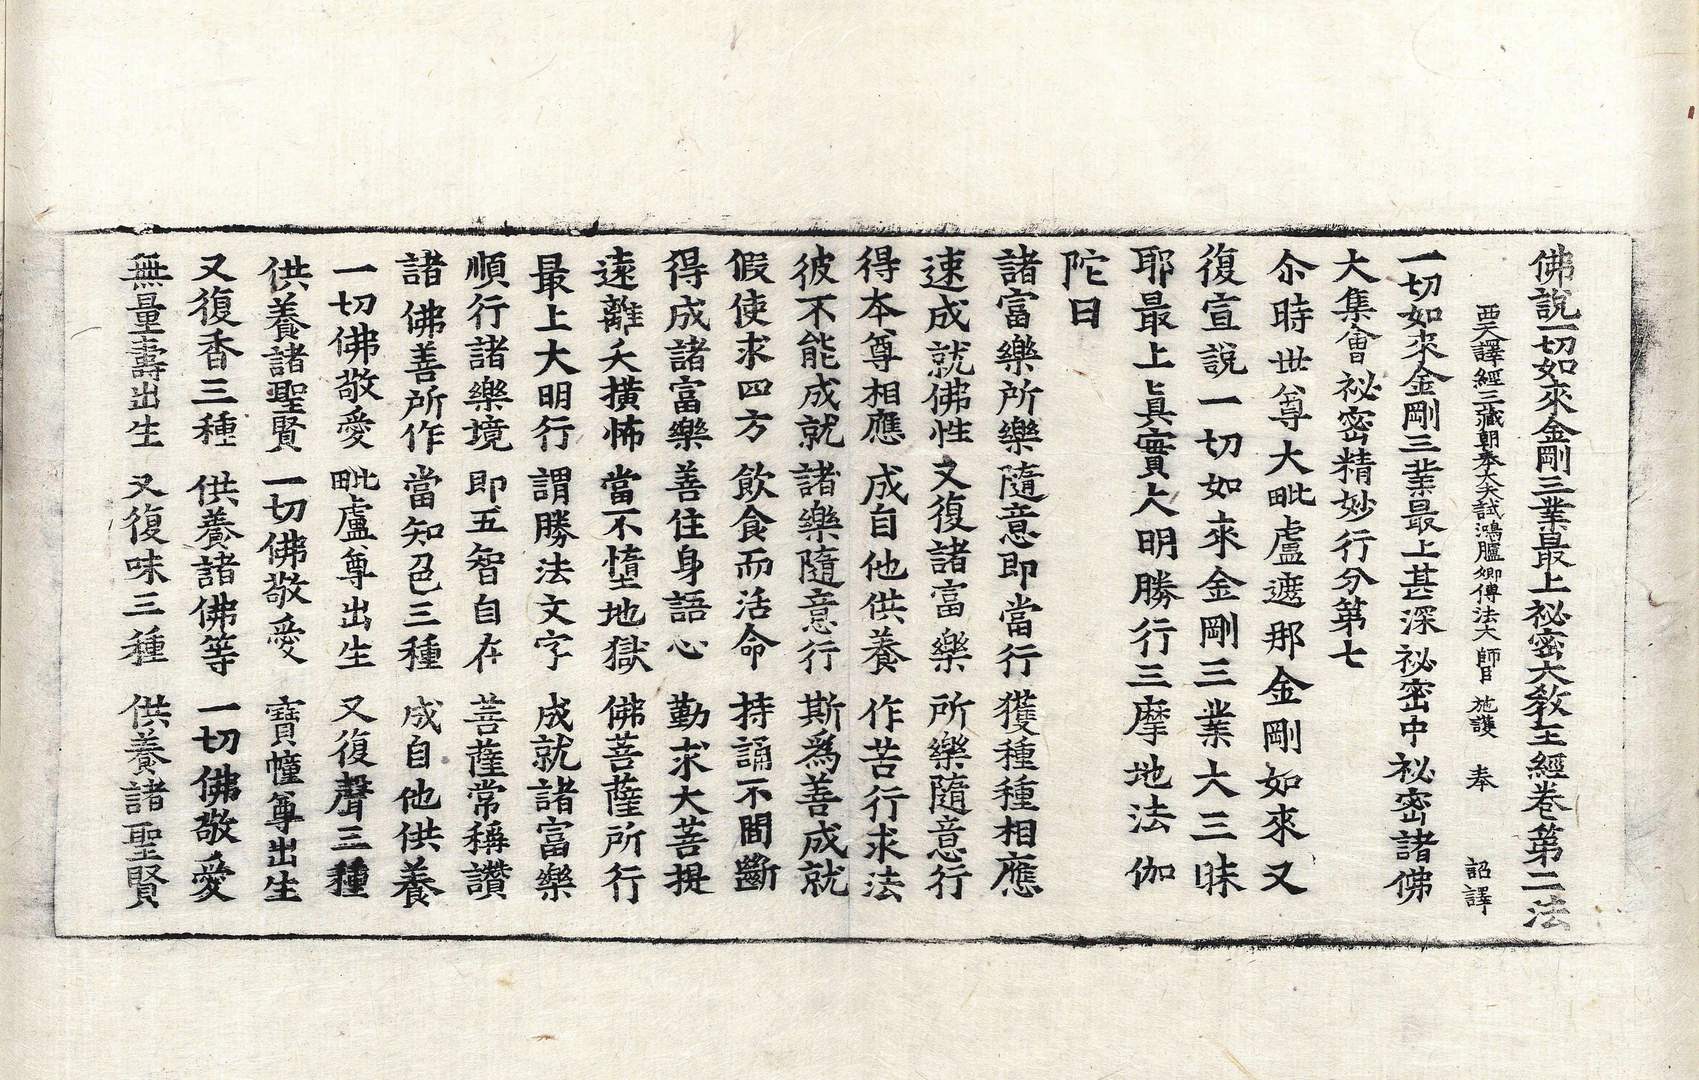 佛說一切如來金剛三業最上祕密大教王經卷第二法
西天譯經三藏朝奉大夫試鴻臚卿傳法大師臣施護奉詔譯
一切如來金剛三業最上甚深祕密中祕密諸佛
大集會祕密精妙行分第七
尒時世尊大毗盧遮那金剛如來又
復宣說一切如來金剛三業大三昧
耶最上眞實大明勝行三摩地法伽
陀曰
諸富樂所樂隨意即當行獲種種相應
速成就佛性又復諸富樂所樂隨意行
得本尊相應成自他供養作苦行求法
彼不能成就諸樂隨意行斯爲善成就
假使求四方飲食而活命持誦不間斷
得成諸富樂善住身語心勤求大菩提
遠離夭橫怖當不墮地獄佛菩薩所行
最上大明行謂勝法文字成就諸富樂
順行諸樂境即五智自在菩薩常稱讚
諸佛善所作當知色三種成自他供養
一切佛敬愛毗盧尊出生又復聲三種
供養諸聖賢一切佛敬愛寶幢尊出生
又復香三種供養諸佛等一切佛敬愛
無量壽出生又復味三種供養諸聖賢